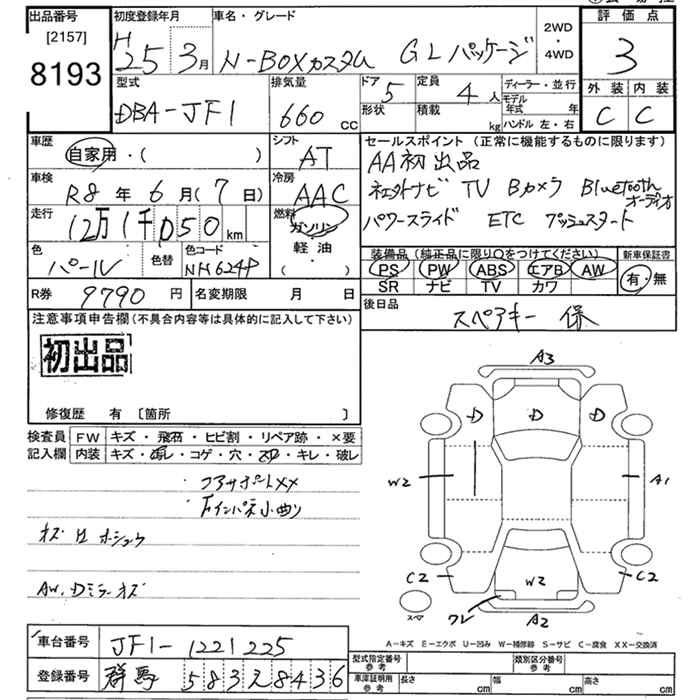 出品番号
[2157]
8193
初度登録年月
H
25 3月
車名・グレード
N-BOXカスタム GLパッケージ
2WD
・
4WD
評価点
3
型式
DBA-JF1
排気量
660 cc
ドア 5
形状
定員 4 人
積載 kg
ディーラー・並行
モデル
年式 年
ハンドル 左・右
外装 内装
C C
車歴
自家用・( )
シフト
AT
車検
R8年 6月(7日)
冷房
AAC
走行
12万1千050km
燃料
ガソリン
軽油
( )
色
パール
色替
色コード
NH624P
R券 9790 円
名変期限 月 日
セールスポイント(正常に機能するものに限ります)
AA初出品
ギャザズナビ TV Bカメラ Bluetooth
オーディオ
パワースライド ETC プッシュスタート
装備品(純正品に限り○をつけてください)
PS PW ABS エアB AW
SR ナビ TV カワ
新車保証書
有・無
後日品
スペアキー 保
注意事項申告欄(不具合内容等は具体的に記入して下さい)
初出品
修復歴 有 [箇所 ]
検査員
記入欄
FW キズ・飛石・ヒビ割・リペア跡・×要
内装 キズ・汚レ・コゲ・穴・スレ・キレ・破レ
・コアサポートXX
・Fインパネ小曲り
キズ 凹 ホシュウ
AW、Dミラーキズ
A3
D D D
W2 A1
C2 W2 C2
スペア
ワレ A2
A-キズ E-エクボ U-凹み W-補修跡 S-サビ C-腐食 XX-交換済
車台番号 JF1-1221225
登録番号 群馬 583る8436
型式指定番号
参考
類別区分番号
参考
車庫証明用
参考
長さ cm 幅 cm 高さ cm